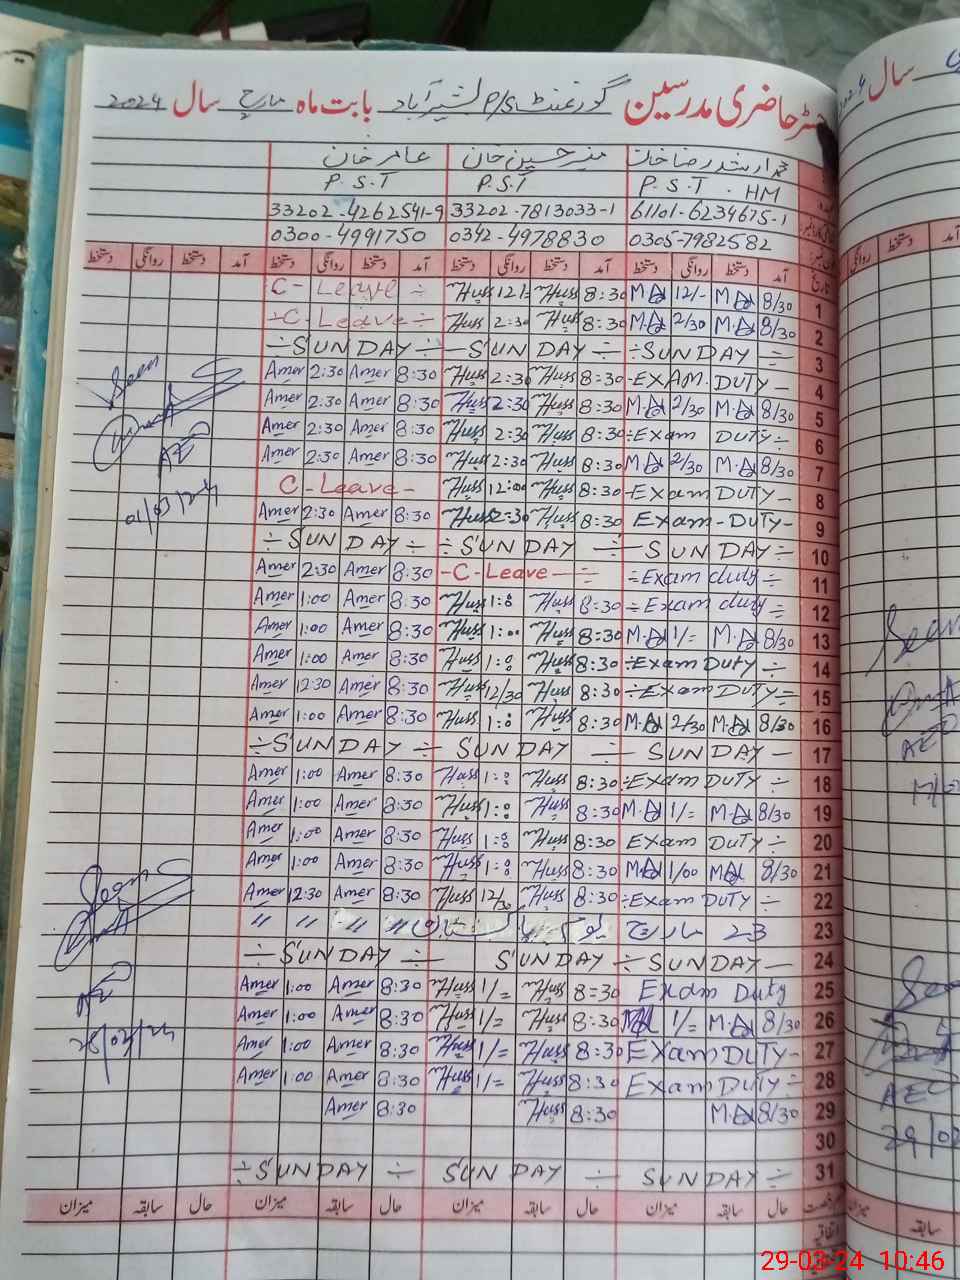 رجسٹر حاضری مدرسین گورنمنٹ P/S بشیر آباد بابت ماہ مارچ سال 2024
محمد ارشد رضا خان منذر حسین خان عامر خان
P.S.T. HM P.S.T P.S.T
61101-6234675-1 33202-7813033-1 33202-4262541-9
0305-7982582 0342-4978830 0300-4991750
تاریخ آمد دستخط روانگی دستخط آمد دستخط روانگی دستخط آمد دستخط روانگی دستخط آمد دستخط روانگی دستخط
1 8/30 M.A 12/- M.A 8:30 Huss 12/= Huss C-Leave ÷
2 8/30 M.A 2/30 M.A 8:30 Huss 2:30 Huss ÷C-Leave÷
3 ÷SUNDAY ÷ -SUNDAY ÷ ÷SUNDAY ÷
4 -EXAM. DUTY- 8:30 Huss 2:30 Huss 8:30 Amer 2:30 Amer
5 8/30 M.A 2/30 M.A 8:30 Huss 2:30 Huss 8:30 Amer 2:30 Amer
6 ÷Exam DUTY÷ 8:30 Huss 2:30 Huss 8:30 Amer 2:30 Amer
7 8/30 M.A 2/30 M.A 8:30 Huss 2:30 Huss 8:30 Amer 2:30 Amer
8 -Exam DUTY- 8:30 Huss 12:00 Huss C-Leave-
9 Exam-DUTY- 8:30 Huss 2:30 Huss 8:30 Amer 2:30 Amer
10 -SUNDAY÷ ÷SUNDAY ÷ ÷SUNDAY÷
11 ÷Exam duty÷ -C-Leave- ÷ 8:30 Amer 2:30 Amer
12 ÷Exam duty÷ 8:30 Huss 1:00 Huss 8:30 Amer 1:00 Amer
13 8/30 M.A 1/= M.A 8:30 Huss 1:00 Huss 8:30 Amer 1:00 Amer
14 ÷Exam DUTY ÷ 8:30 Huss 1:00 Huss 8:30 Amer 1:00 Amer
15 ÷Exam DUTY= 8:30 Huss 12/30 Huss 8:30 Amer 12:30 Amer
16 8/30 M.A 2/30 M.A 8:30 Huss 1:00 Huss 8:30 Amer 1:00 Amer
17 SUNDAY - SUNDAY ÷ ÷SUNDAY ÷
18 ÷Exam DUTY ÷ 8:30 Huss 1:00 Huss 8:30 Amer 1:00 Amer
19 8/30 M.A 1/= M.A 8:30 Huss 1:00 Huss 8:30 Amer 1:00 Amer
20 Exam DUTY÷ 8:30 Huss 1:00 Huss 8:30 Amer 1:00 Amer
21 8/30 M.A 1/00 M.A 8:30 Huss 1:00 Huss 8:30 Amer 1:00 Amer
22 ÷Exam DUTY ÷ 8:30 Huss 12/30 Huss 8:30 Amer 12:30 Amer
23 23 مارچ یوم پاکستان " " " "
24 ÷SUNDAY- SUNDAY ÷SUNDAY÷
25 Exam Duty 8:30 Huss 1/= Huss 8:30 Amer 1:00 Amer
26 8/30 M.A 1/= 8:30 Huss 1/= Huss 8:30 Amer 1:00 Amer
27 EXamDUTY- 8:30 Huss 1/= Huss 8:30 Amer 1:00 Amer
28 ExamDUTY÷ 8:30 Huss 1/= Huss 8:30 Amer 1:00 Amer
29 8/30 M.A 8:30 Huss 8:30 Amer
30
31 SUNDAY÷ SUNDAY ÷ ÷SUNDAY ÷
حال سابقہ میزان حال سابقہ میزان حال سابقہ میزان حال سابقہ میزان
اتفاقیہ
Seen
AEO
01/03/24
Seen
AEO
28/03/24
سال
دستخط روانگی
Seen
AEO
Seen
AEO
میزان سابقہ
29-03-24 10:46